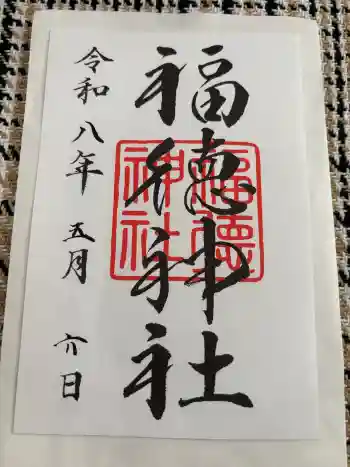 福徳神社
福徳神社
令和八年五月六日